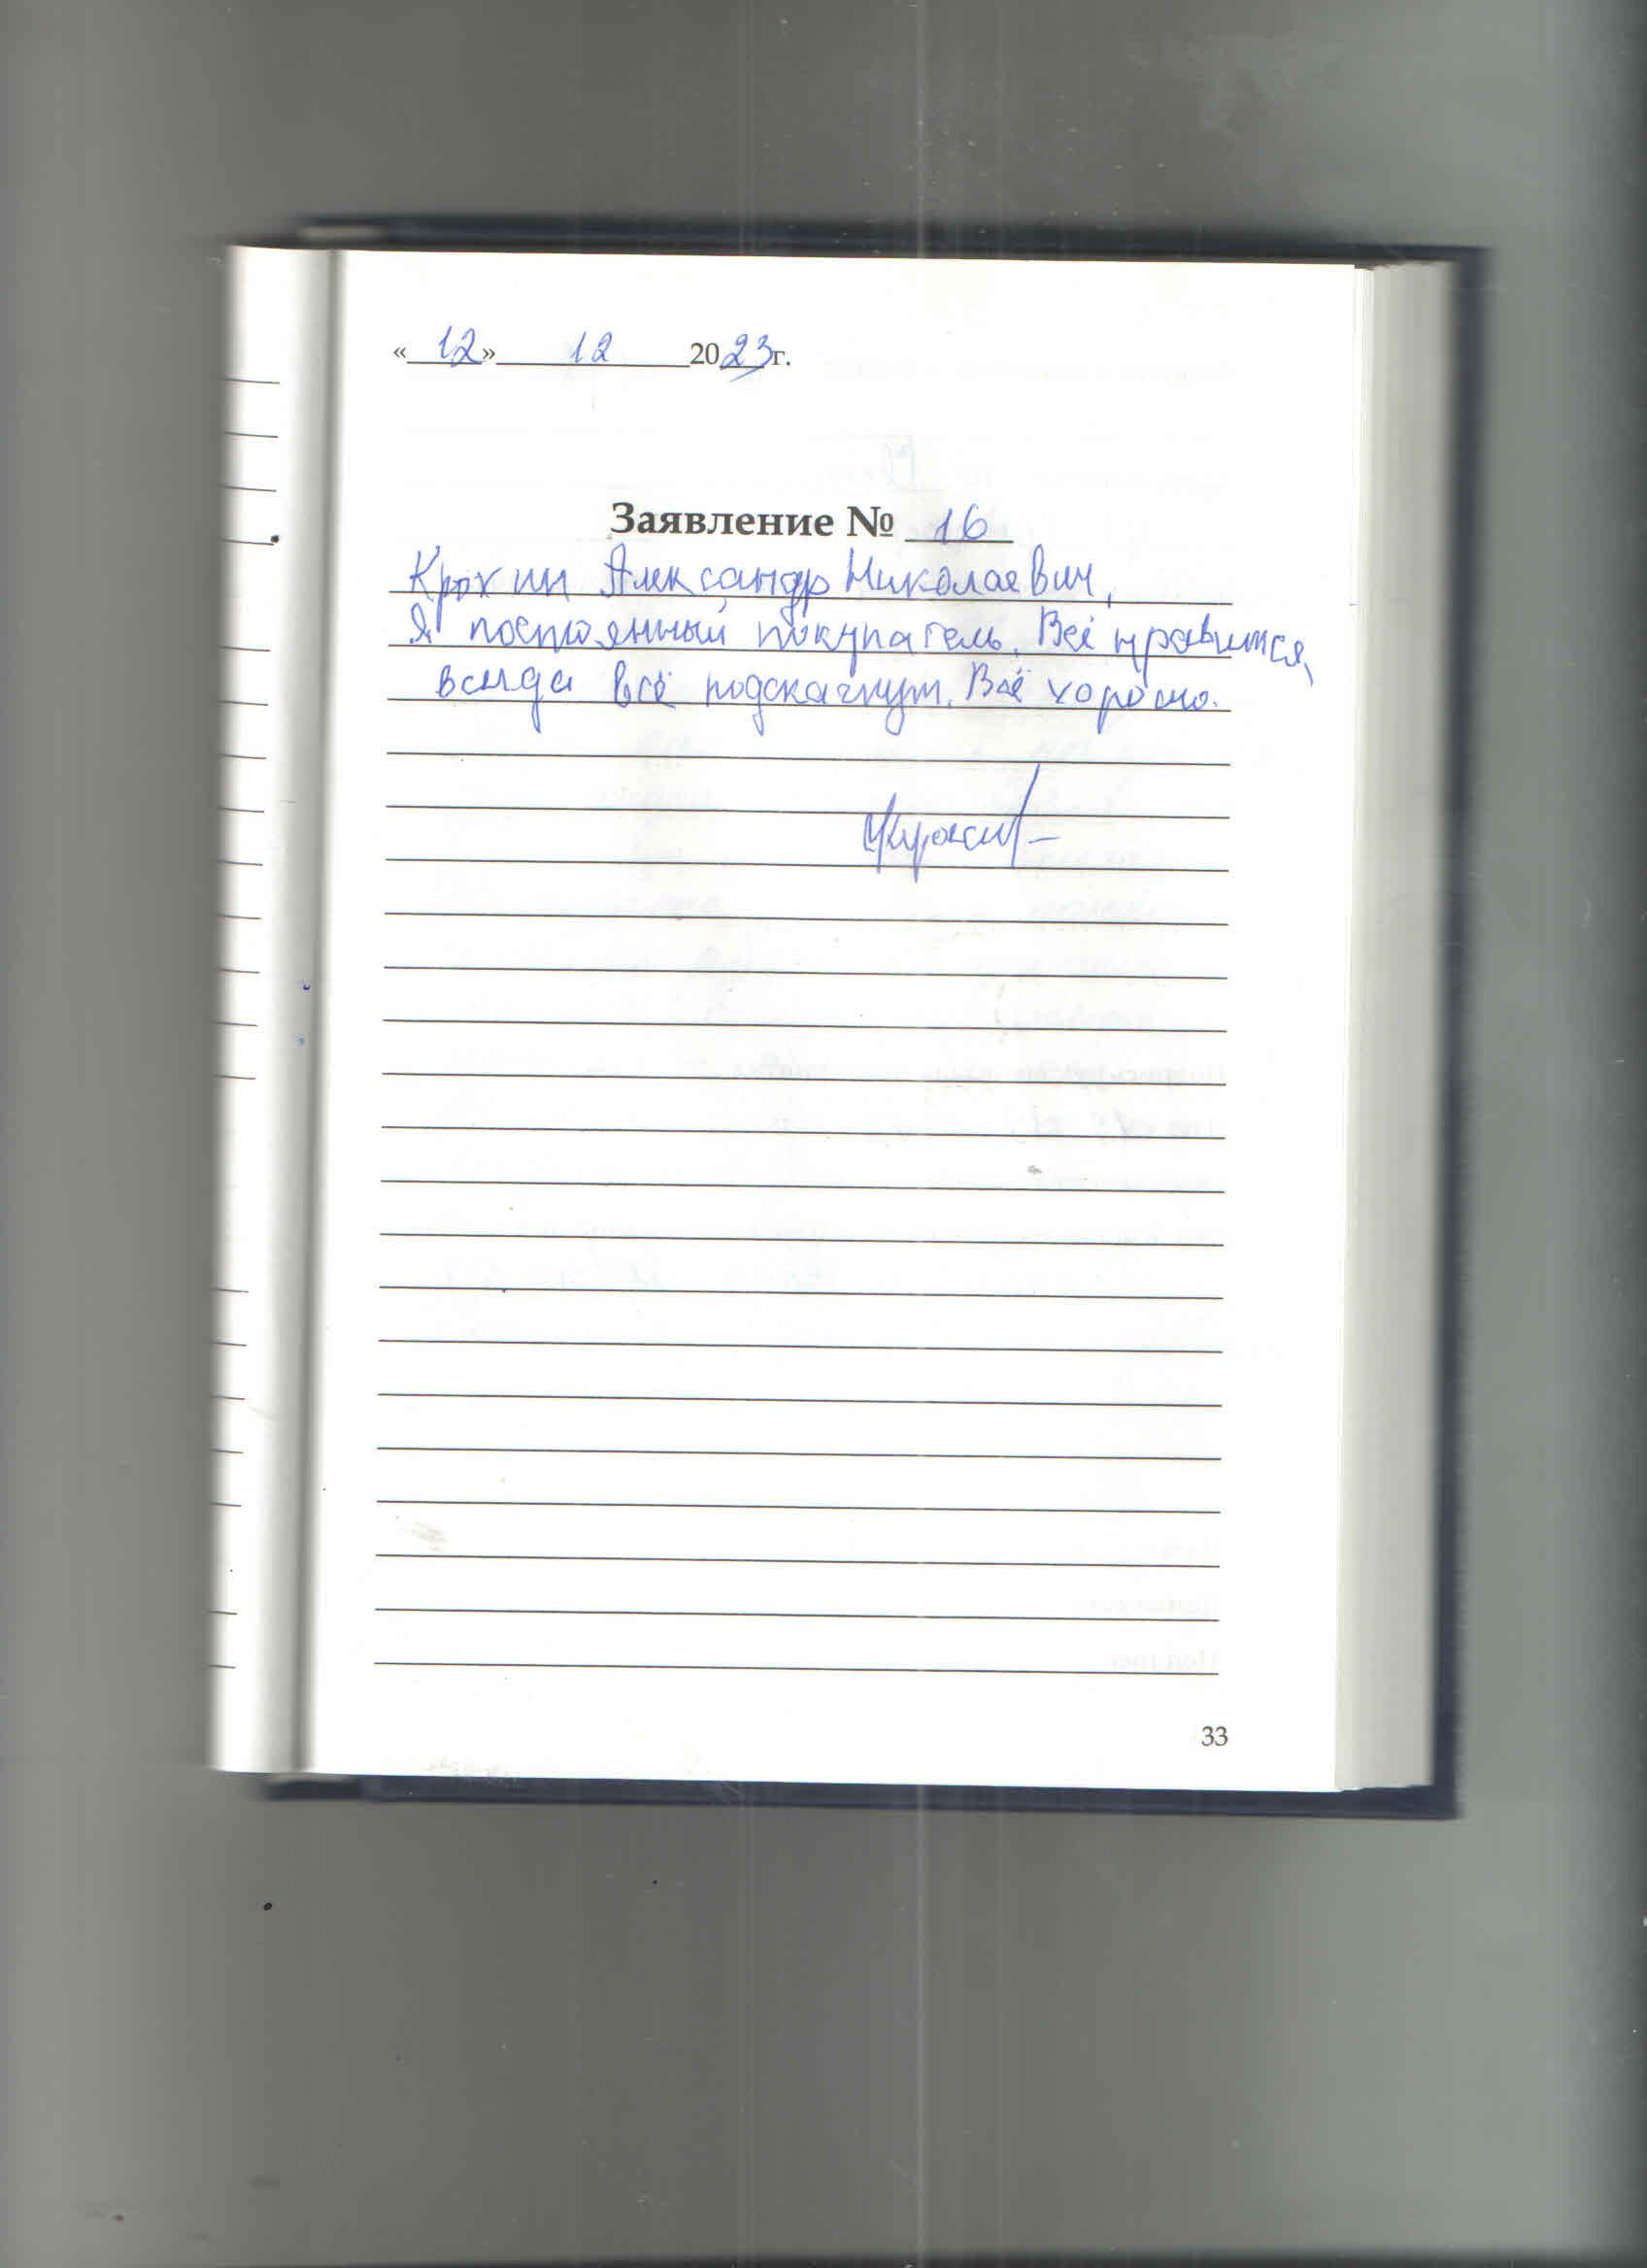 «12» 12 2023г.
Заявление № 16
Крохин Александр Николаевич,
Я постоянный покупатель. Всё нравится,
всегда всё подскажут. Всё хорошо.
33